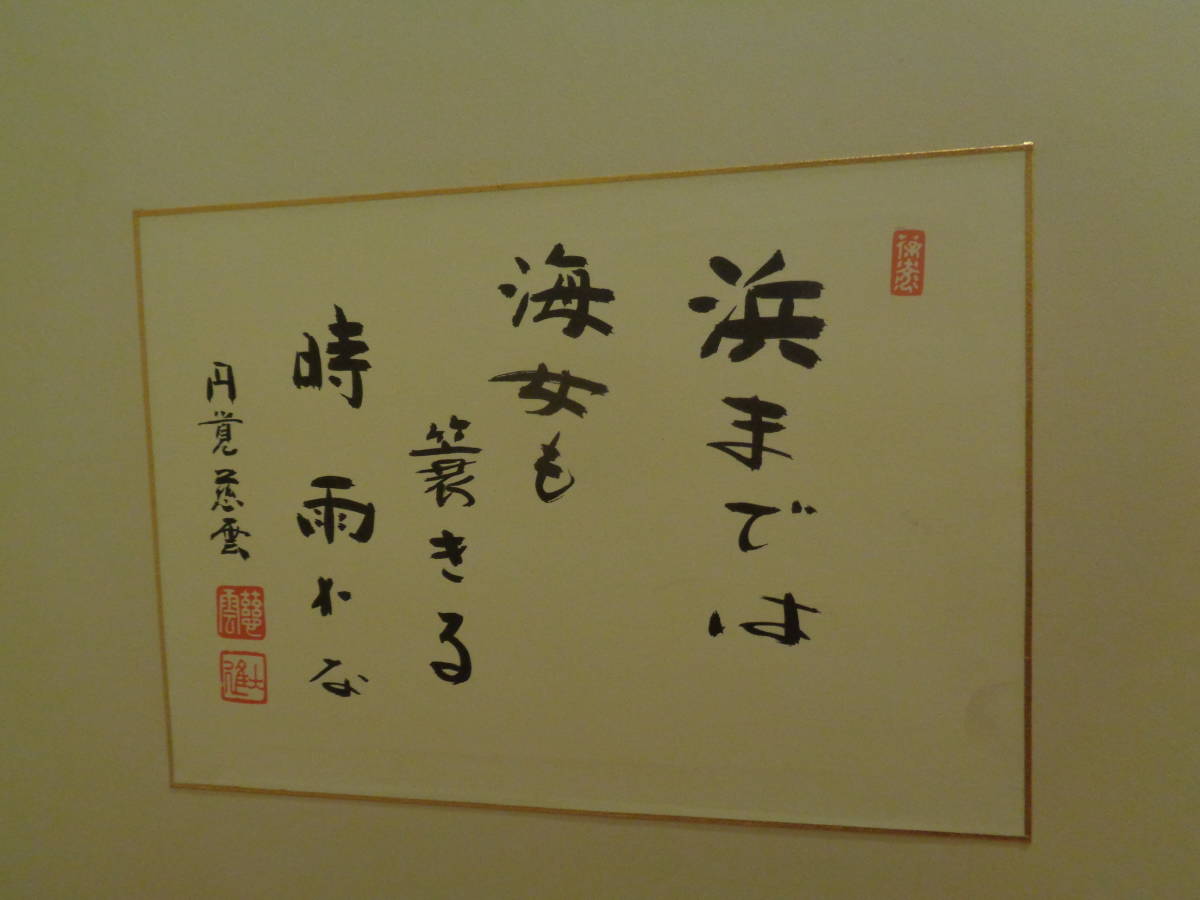 浜までは
海女も
簑きる
時雨かな
円覚慈雲
慈雲